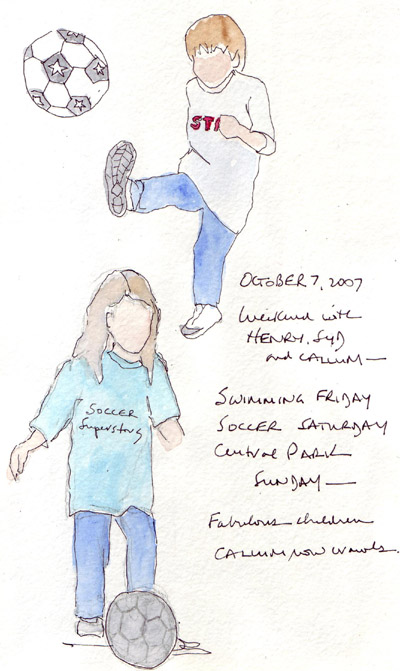 ST
SOCCER
Superstars
OCTOBER 7, 2007
Weekend with
HENRY, SYD
and CALLUM —
SWIMMING FRIDAY
SOCCER SATURDAY
Central PARK
SUNDAY —
Fabulous children
CALLUM now crawls.